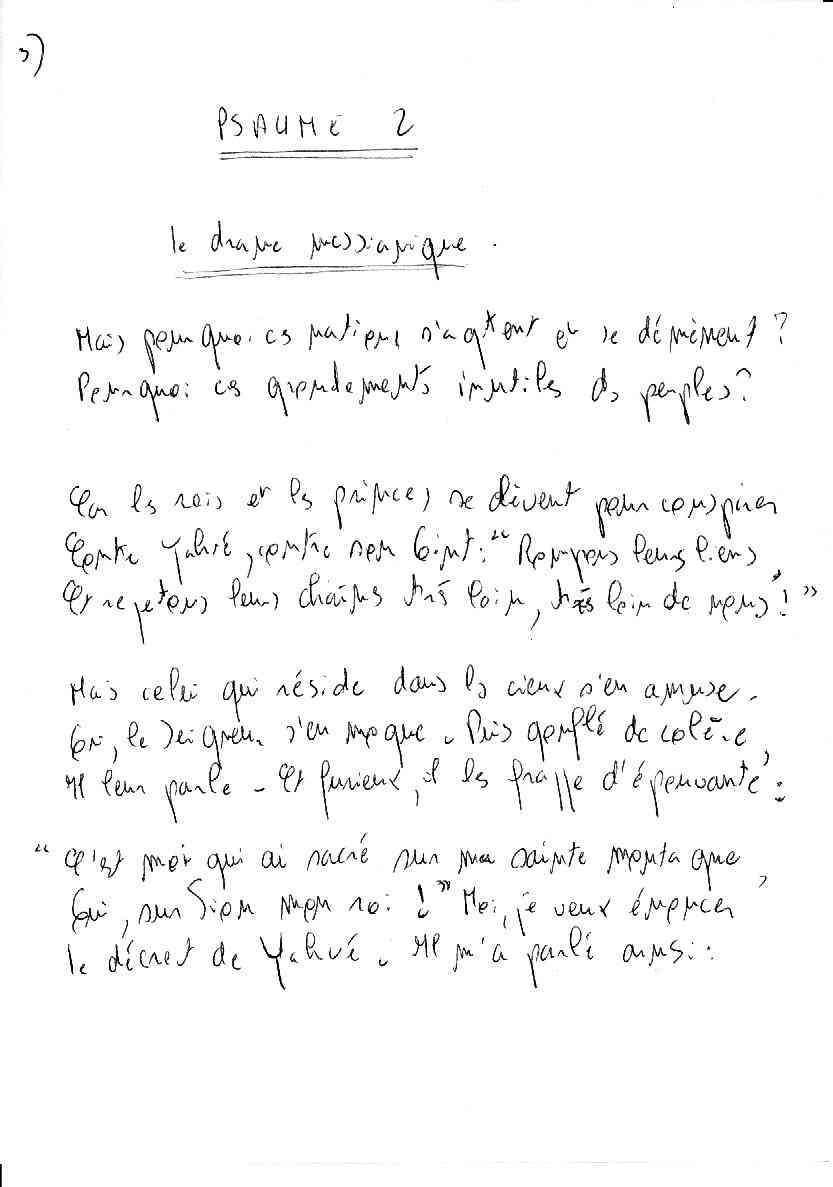 3)
PSAUME 2
le drame messianique.
Mais pourquoi ces nations s'agitent et se démènent ?
Pourquoi ces grondements inutiles des peuples ?
Car les rois et les princes se lèvent pour conspirer
Contre Yahvé, contre son Oint : " Rompons leurs liens,
Et rejetons leurs chaînes très loin, très loin de nous ! "
Mais celui qui réside dans les cieux s'en amuse.
Oui, le Seigneur s'en moque. Puis gonflé de colère,
Il leur parle - Et furieux, il les frappe d'épouvante :
" C'est moi qui ai sacré sur ma sainte montagne,
Oui, sur Sion mon roi ! " Moi, je veux énoncer
le décret de Yahvé. Il m'a parlé ainsi :